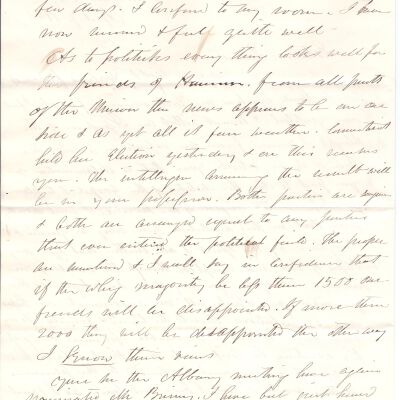 few days. I confined to my room. I am
now mend & feel quite well
As to politiks every thing looks well for
the friends of Harrison. from all parts
of the Union the news appears to be on one
side & as yet all is fair weather. Connecticut
held her Election yesterday & on this
you. The intelligen the result will
be in your possession. Both parties are
& both are equal to any parties
that ever entered the political field. The people
are & I will say in confidence that
if the whig majority be less than 1500 our
friends will be disappointed. If more than
2000 they will be disappointed the other way
I Know their views
in the Albany meeting have again
nominated Mr I have but just heard